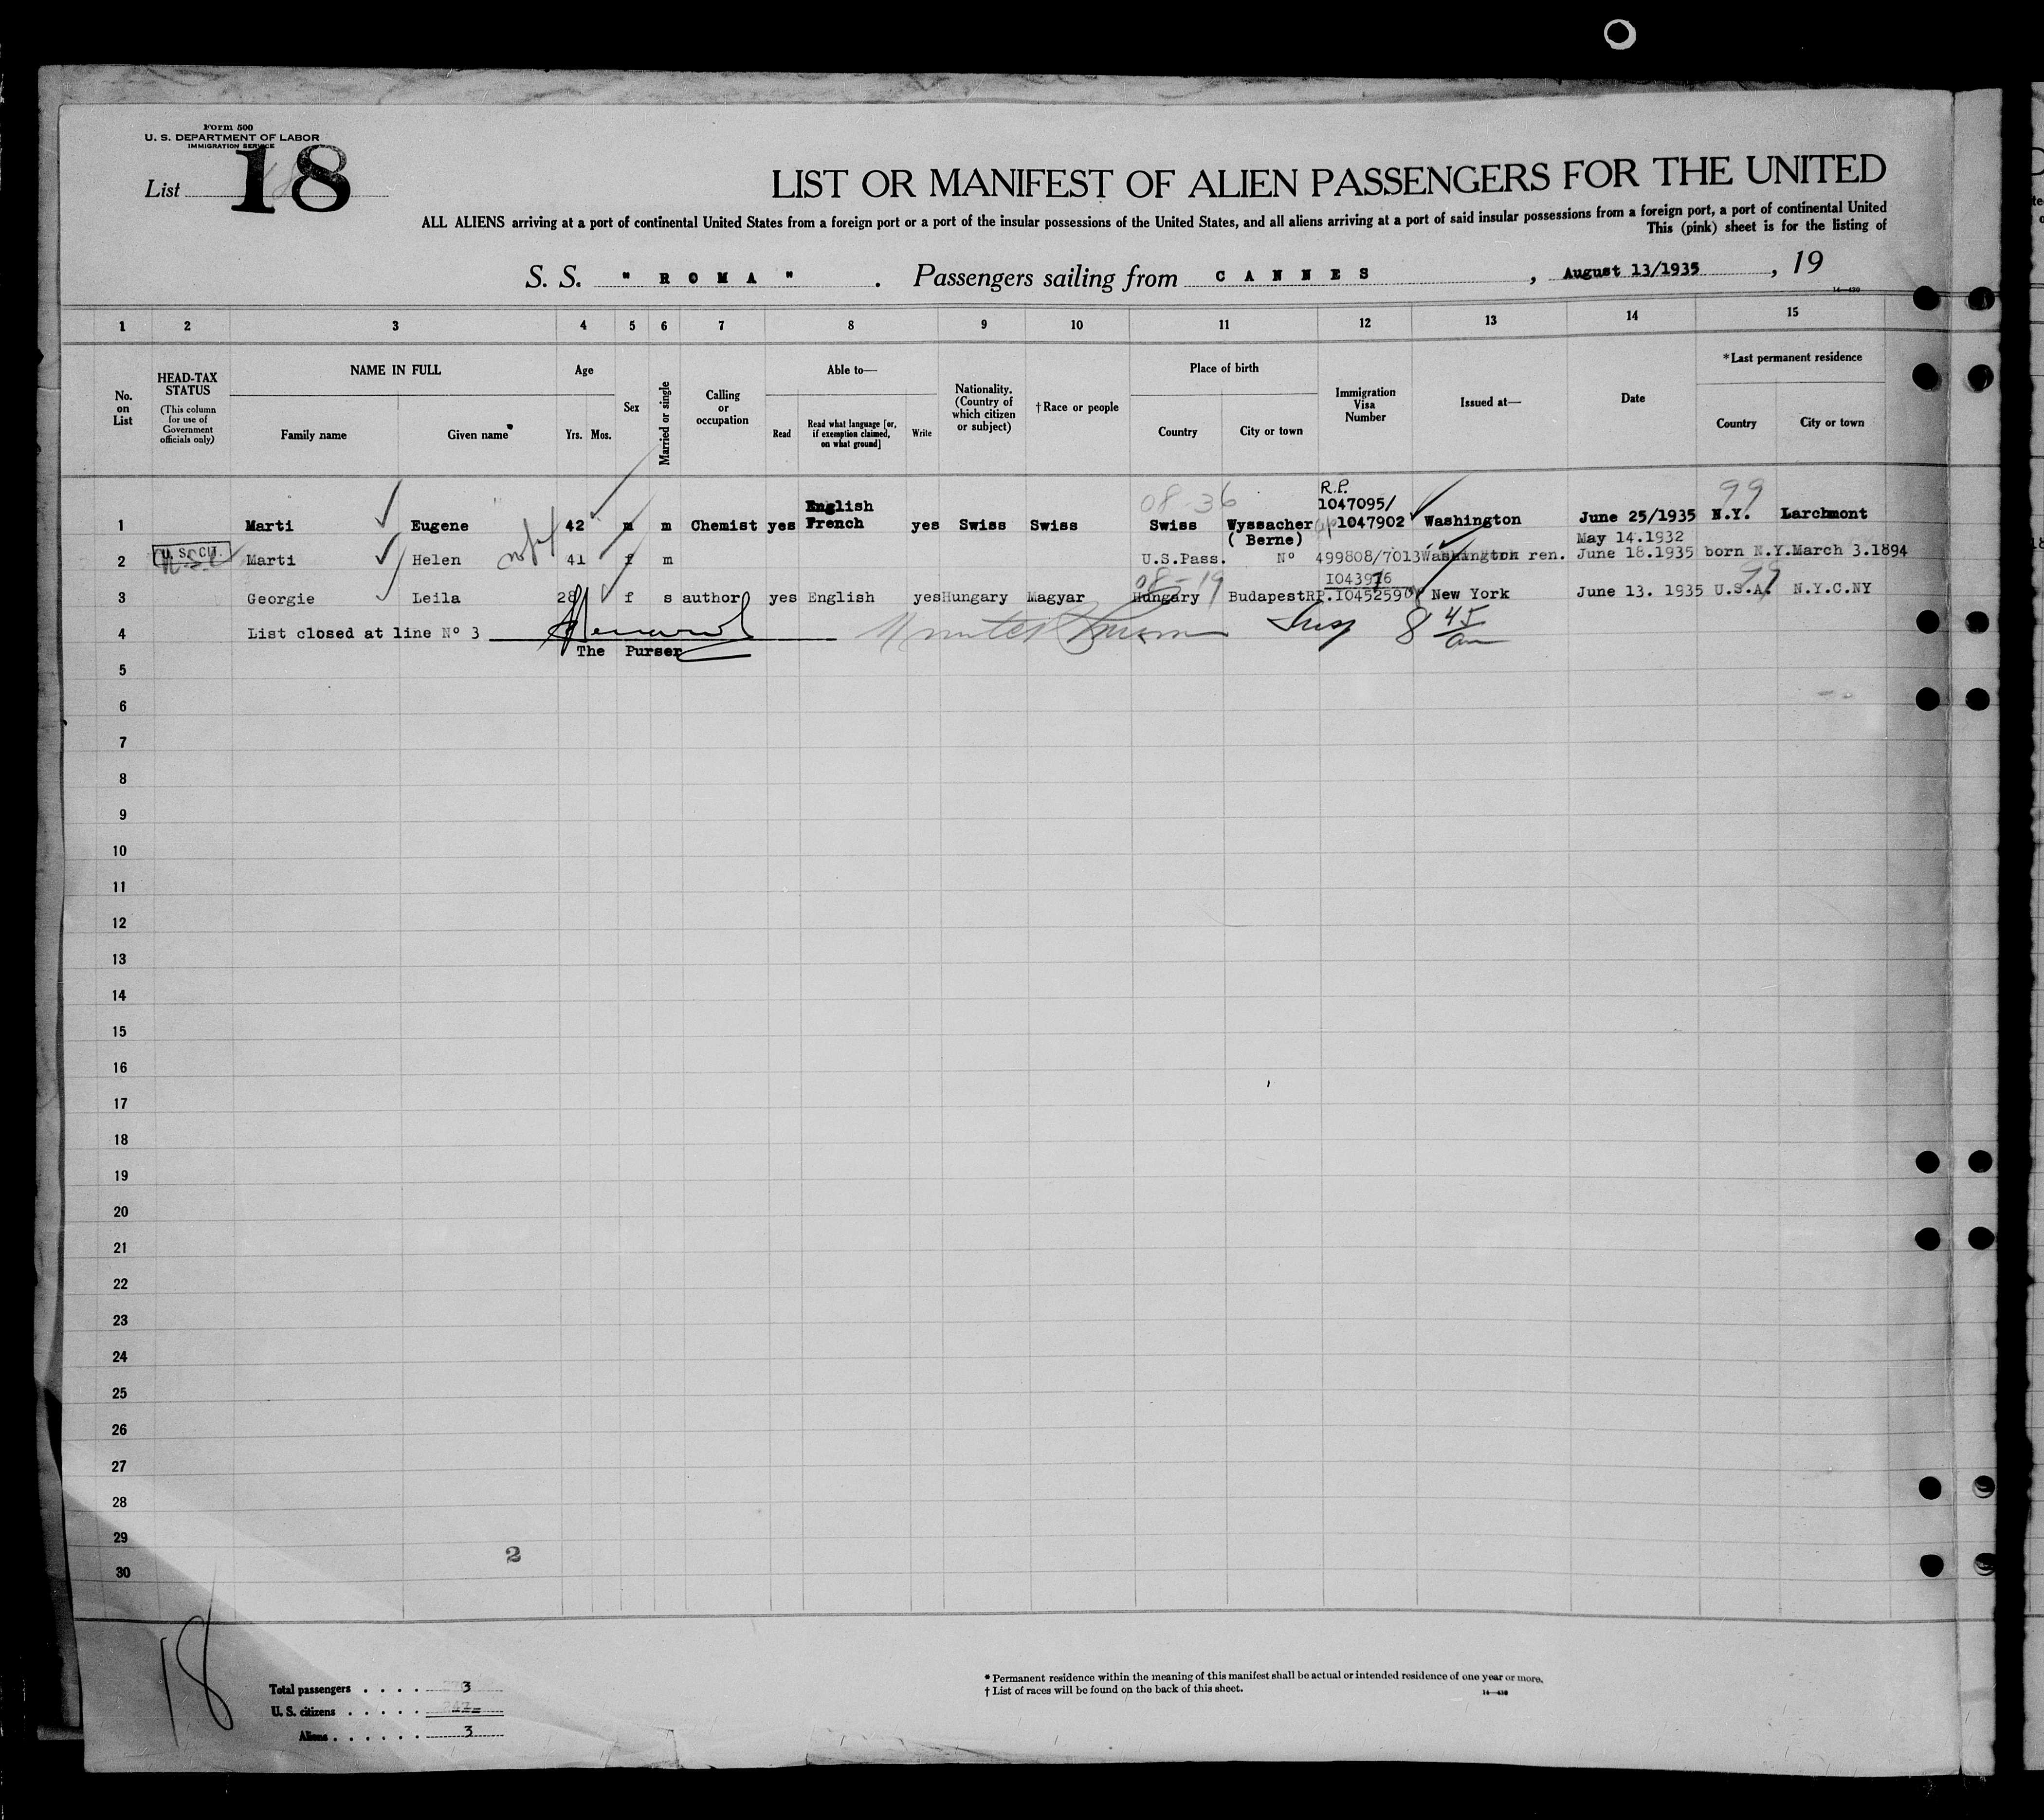 Form 500
U. S. DEPARTMENT OF LABOR
IMMIGRATION SERVICE
List 18
LIST OR MANIFEST OF ALIEN PASSENGERS FOR THE UNITED
ALL ALIENS arriving at a port of continental United States from a foreign port or a port of the insular possessions of the United States, and all aliens arriving at a port of said insular possessions from a foreign port, a port of continental United
This (pink) sheet is for the listing of
S. S. " R O M A " . Passengers sailing from C A N N E S , August 13/1935 , 19
14—430
1 2 3 4 5 6 7 8 9 10 11 12 13 14 15
No. on List
HEAD-TAX STATUS
(This column for use of Government officials only)
NAME IN FULL
Family name Given name
Age
Yrs. Mos.
Sex
Married or single
Calling or occupation
Able to—
Read
Read what language [or, if exemption claimed, on what ground]
Write
Nationality. (Country of which citizen or subject)
†Race or people
Place of birth
Country City or town
Immigration Visa Number
Issued at—
Date
*Last permanent residence
Country City or town
08-36 R.P. 99
English 1047095/
1 Marti Eugene 42 m m Chemist yes French yes Swiss Swiss Swiss Wyssacher 1047902 Washington June 25/1935 N.Y. Larchmont
( Berne) May 14.1932
2 U. S. CIT. Marti Helen 41 f m U.S.Pass. Nº 499808/7013 Washington ren. June 18.1935 born N.Y.March 3.1894
08-19 99
3 Georgie Leila 28 f s author yes English yes Hungary Magyar Hungary Budapest RP.I0452590 New York June 13. 1935 U.S.A. N.Y.C.NY
4 List closed at line Nº 3 Insp 8 45 am
The Purser
5
6
7
8
9
10
11
12
13
14
15
16
17
18
19
20
21
22
23
24
25
26
27
28
29
2
30
18
Total passengers . . . . 3
U. S. citizens . . . . .
Aliens . . . . . . 3
* Permanent residence within the meaning of this manifest shall be actual or intended residence of one year or more.
† List of races will be found on the back of this sheet.
14—430